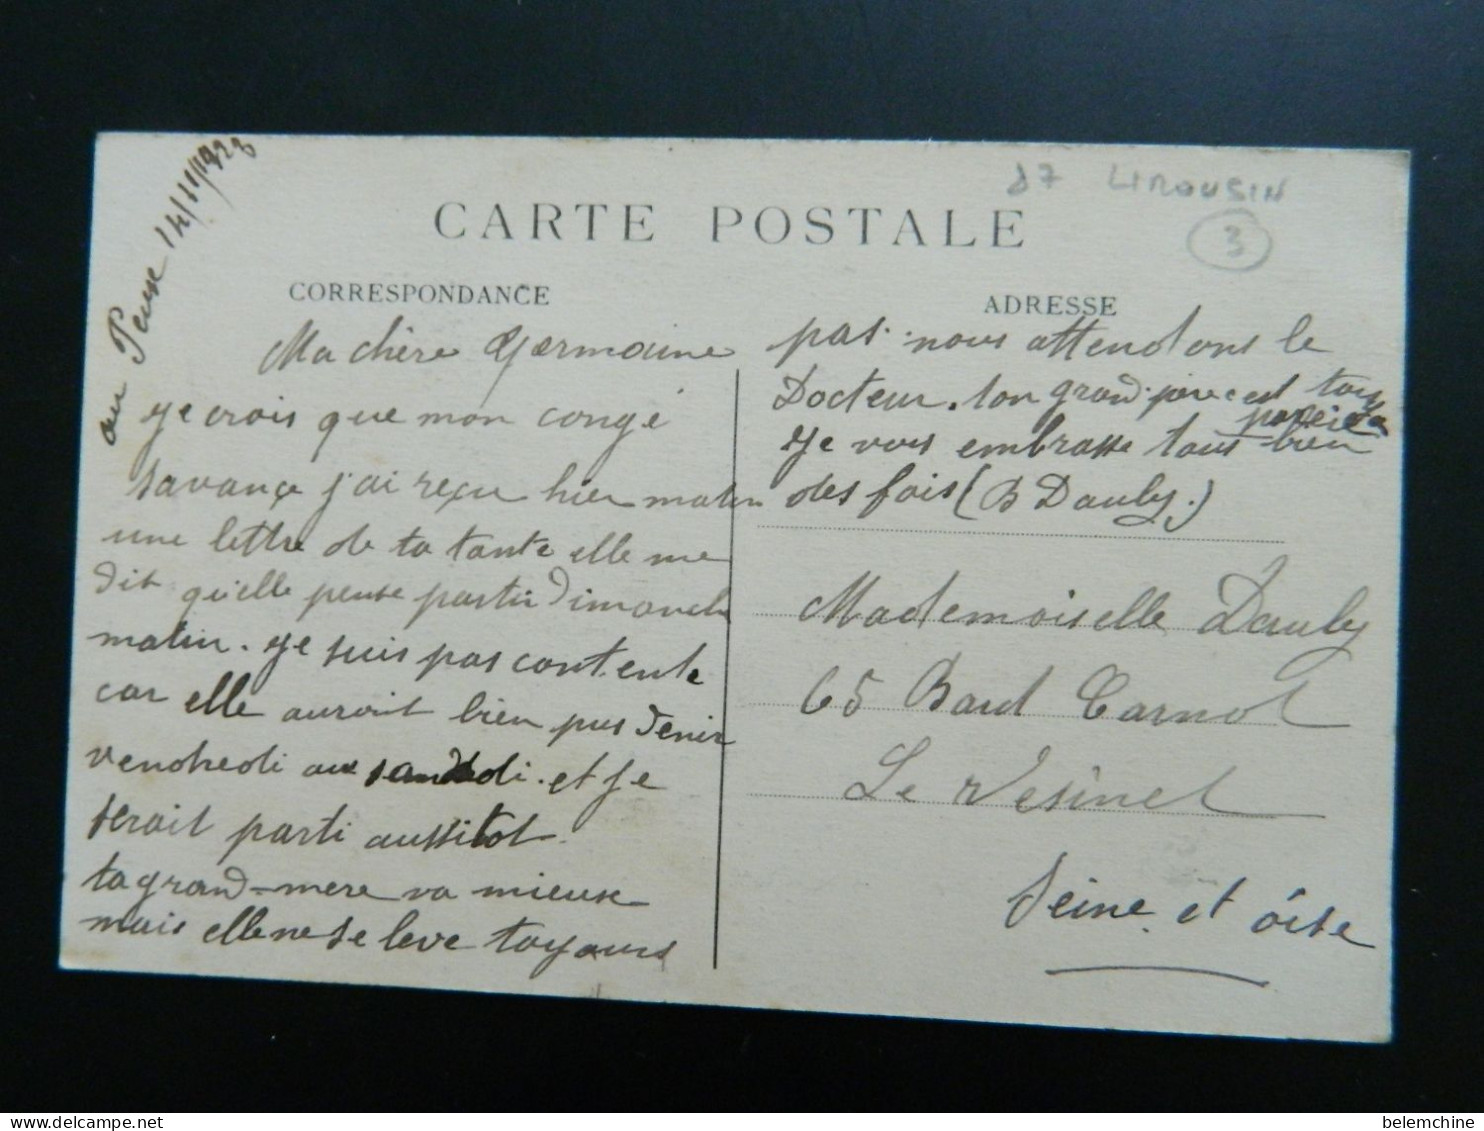 87 LIMOUSIN
3
CARTE POSTALE
CORRESPONDANCE
ADRESSE
au 14/11/1923
Ma chère Germaine
je crois que mon congé
savançe j'ai reçu hier matin
une lettre de ta tante elle me
dit qu'elle pense partir dimanche
matin. je suis pas contente
car elle auroit bien pus venir
vendredi ou samdedi. et je
serait parti aussitot
ta grand-mere va mieux
mais elle ne se leve toujours
pas. nous attendons le
Docteur. ton grand-père est toujs
pareil
je vous embrasse tous bien
des fois (B Dauby.)
Mademoiselle Dauby
65 Bard Carnot
Le Vésinet
Seine et Oise
belemchine